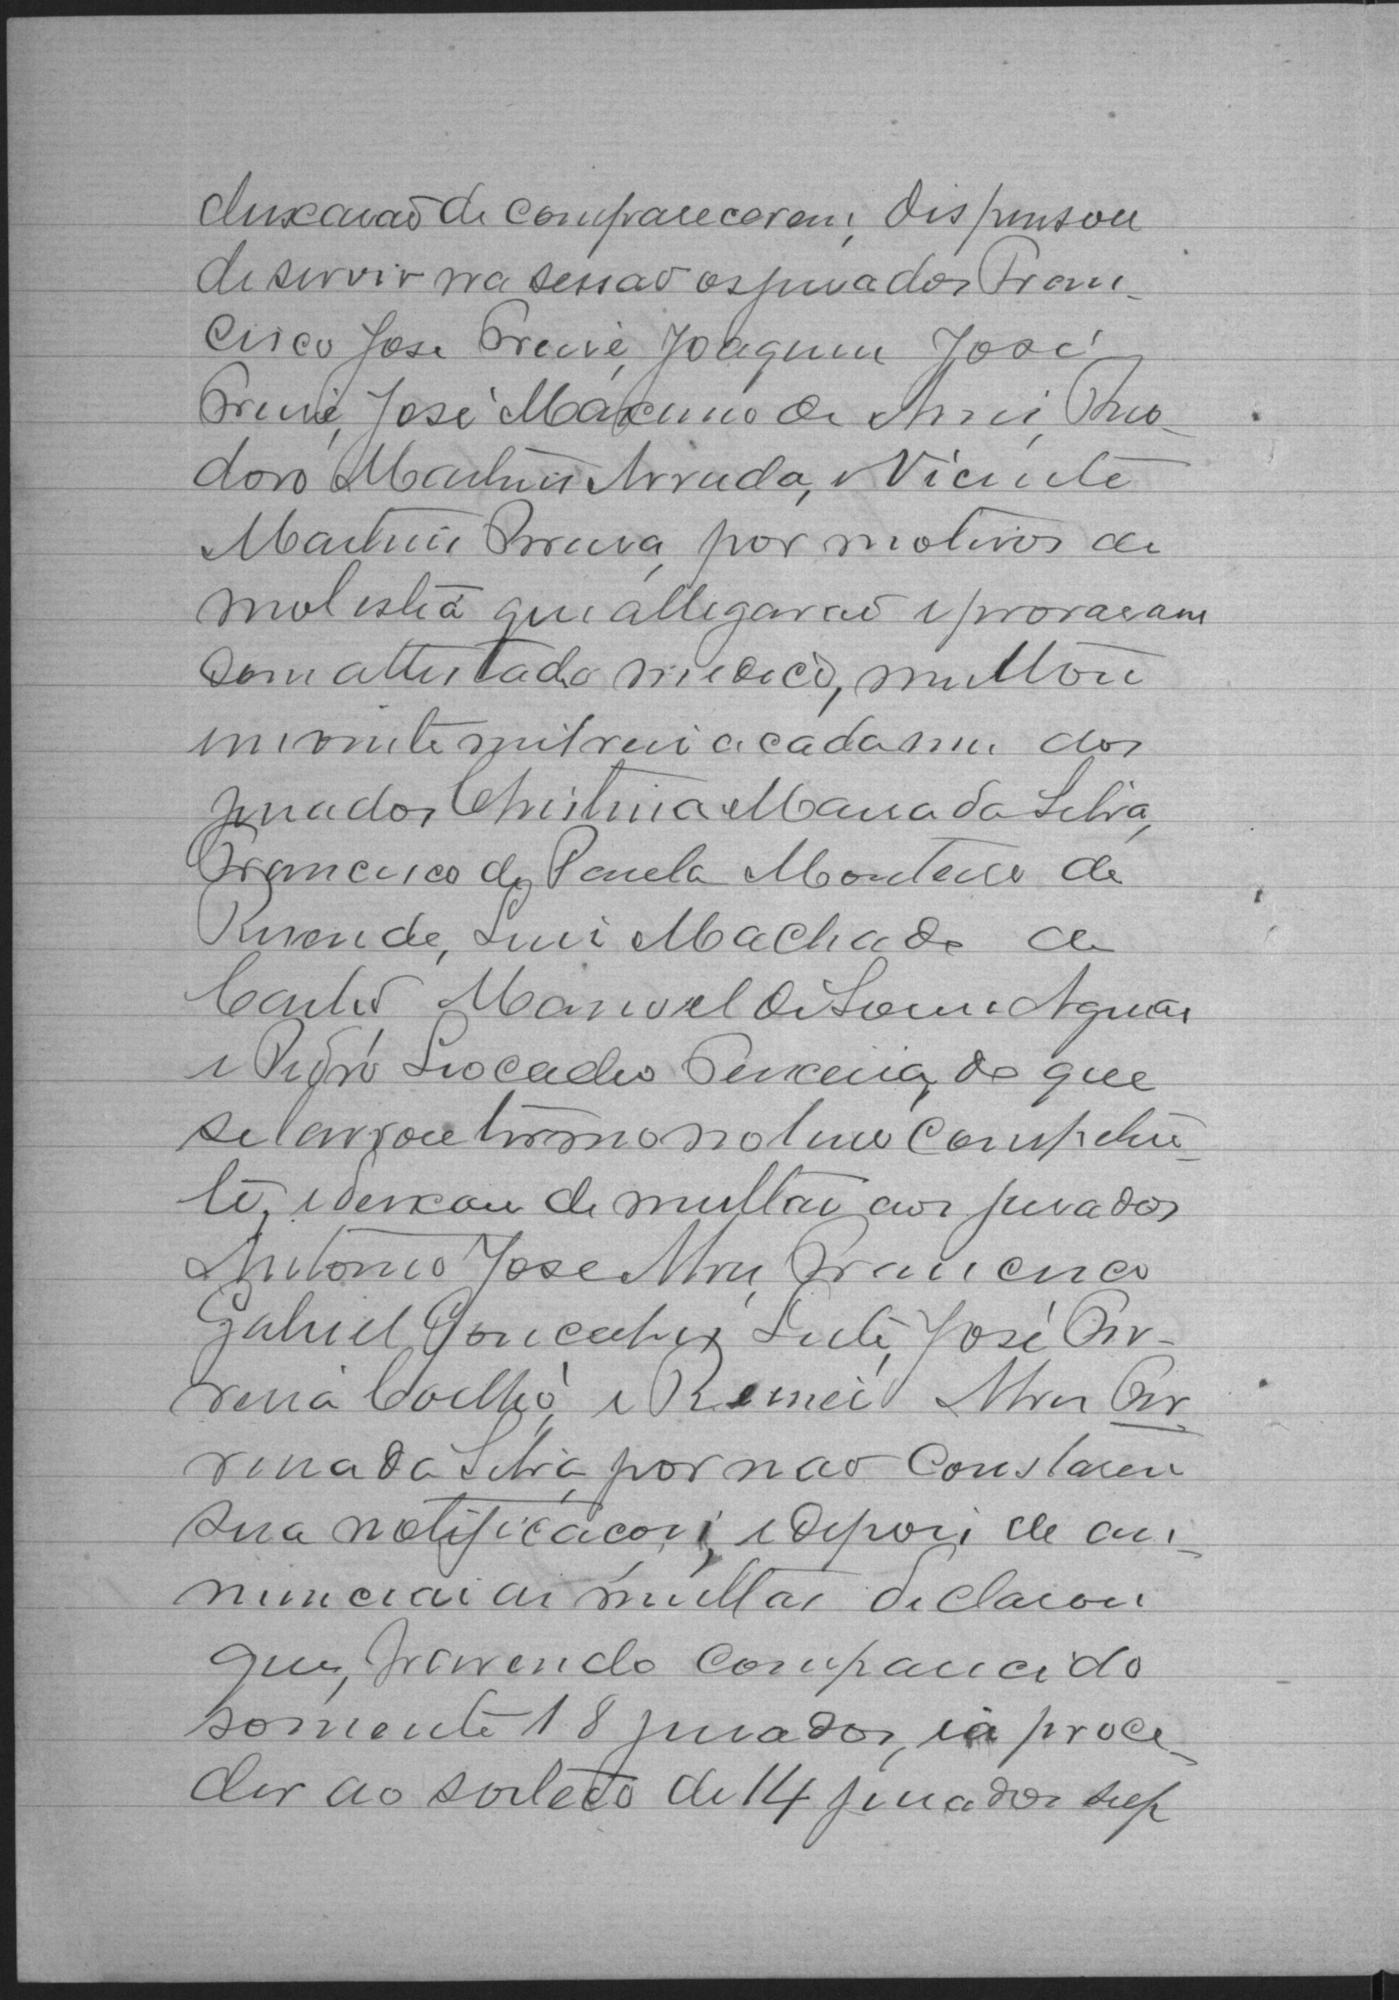 deixarão de comparecerem; dispensou
de servir na sessão os jurados Fran-
cisco José Freire, Joaquim José
Freire, José Maximo de Assis,
doro Martins Arruda, e Vicente
Martins Ferreira, por motivos de
molestia que allegarão e provaram
com attestado medico, multou
em vinte mil reis a cada um dos
jurados Christino Maria da Silva,
Francisco de Paula Monteiro de
Resende, Luis Machado de
Castro Manoel de Sousa Aguiar
e Pedro Leocadio Teixeira, do que
se lavrou termo no livro competen-
te, e deixou de multar aos jurados
Antonio José Francisco
Gabriel Gonçalves Leite, José Fer-
reira Coelho, e Fer-
reira da Silva, por não constarem
sua notificaçoes, e depois de an-
nunciar as multas declarou
que, havendo comparecido
somente 18 jurados, ia proce-
der ao sorteio de 14 jurados sup